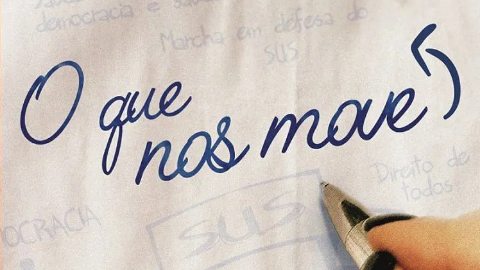 democracia e saú
Marcha em defesa do
SUS
O que
nos move
Direito de
todos
OCRACIA
SUS